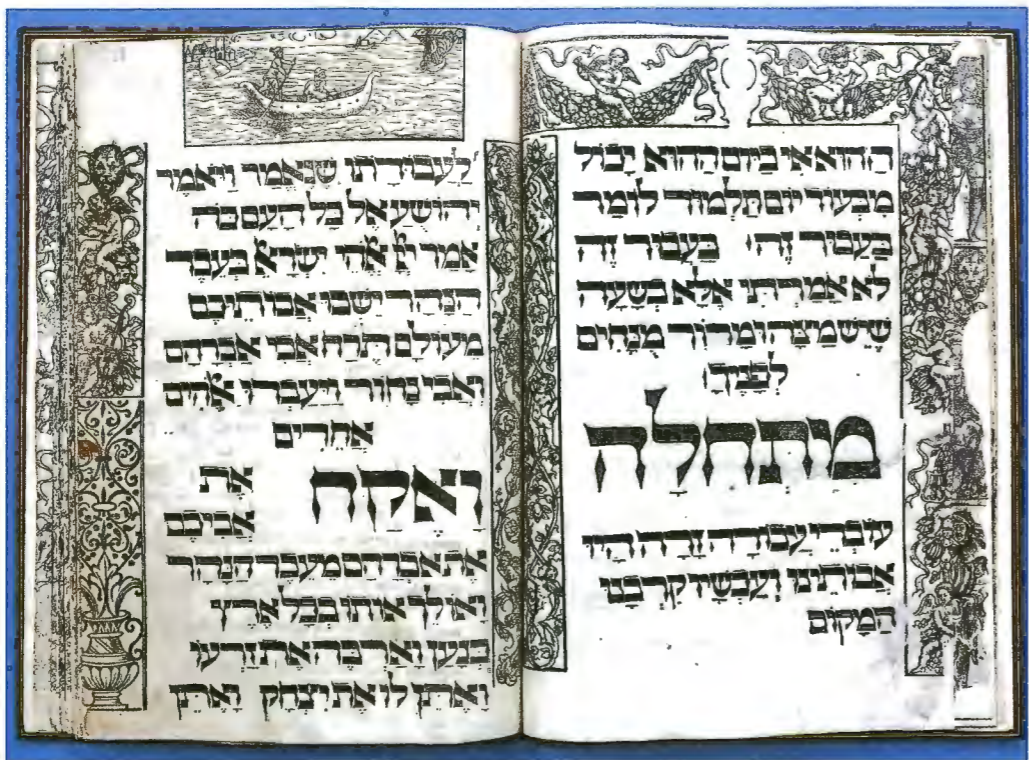 הַהוּא אִי בַּיּוֹם הַהוּא יָכוֹל
מִבְּעוֹד יוֹם תַּלְמוּד לוֹמַר
בַּעֲבוּר זֶה׳ בַּעֲבוּר זֶה
לֹא אָמַרְתִּי אֶלָּא בְּשָׁעָה
שֶׁיֵּשׁ מַצָּה וּמָרוֹר מֻנָּחִים
לְפָנֶיךָ׃
מִתְּחִלָּה
עוֹבְדֵי עֲבוֹדָה זָרָה הָיוּ
אֲבוֹתֵינוּ וְעַכְשָׁיו קֵרְבָנוּ
הַמָּקוֹם
לַעֲבוֹדָתוֹ שֶׁנֶּאֱמַר וַיֹּאמֶר
יְהוֹשֻׁעַ אֶל כָּל הָעָם כֹּה
אָמַר יְיָ אֱלֹהֵי יִשְׂרָאֵל בְּעֵבֶר
הַנָּהָר יָשְׁבוּ אֲבוֹתֵיכֶם
מֵעוֹלָם תֶּרַח אֲבִי אַבְרָהָם
וַאֲבִי נָחוֹר וַיַּעַבְדוּ אֱלֹהִים
אֲחֵרִים
וָאֶקַּח אֶת
אֲבִיכֶם
אֶת אַבְרָהָם מֵעֵבֶר הַנָּהָר
וָאוֹלֵךְ אוֹתוֹ בְּכָל אֶרֶץ
כְּנַעַן וָאַרְבֶּה אֶת זַרְעוֹ
וָאֶתֵּן לוֹ אֶת יִצְחָק וָאֶתֵּן